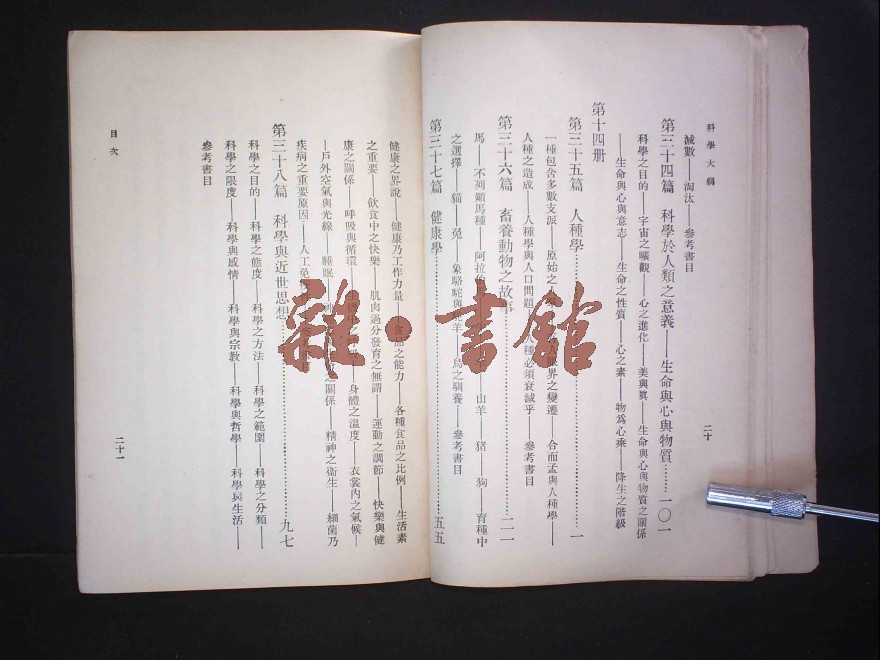 科學大綱
二十
減數——淘汰——參考書目
第三十四篇 科學於人類之意義——生命與心與物質……一〇一
科學之目的——宇宙之曠觀——心之進化——美與眞——生命與心與物質之關係
——生命與心與意志——生命之性質——心之素——物爲心乘——降生之階級
第十四册
第三十五篇 人種學……一
一種包含多數支派——原始之人 眼界之變遷——合而孟與人種學——
人種之造成——人種學與人口問題 人種必須衰減乎——參考書目
第三十六篇 畜養動物之故事……二一
馬——不列顚馬種——阿拉伯 山羊——猪——狗——育種中
之選擇——貓——兎——象駱駝與 羊——鳥之馴養——參考書目
第三十七篇 健康學……五五
健康之界說——健康乃工作力量——食品之能力——各種食品之比例——生活素
之重要——飲食中之快樂——肌肉過分發育之無謂——運動之調節——快樂與健
康之關係——呼吸與循環 身體之溫度——衣裳內之氣候—
—戶外空氣與光線——睡眠 之關係——精神之衛生——細菌乃
疾病之重要原因——人工免
第三十八篇 科學與近世思想……九七
科學之目的——科學之態度——科學之方法——科學之範圍——科學之分類——
科學之限度——科學與感情——科學與宗教——科學與哲學——科學與生活
參考書目
目次
二十一
雜·書館